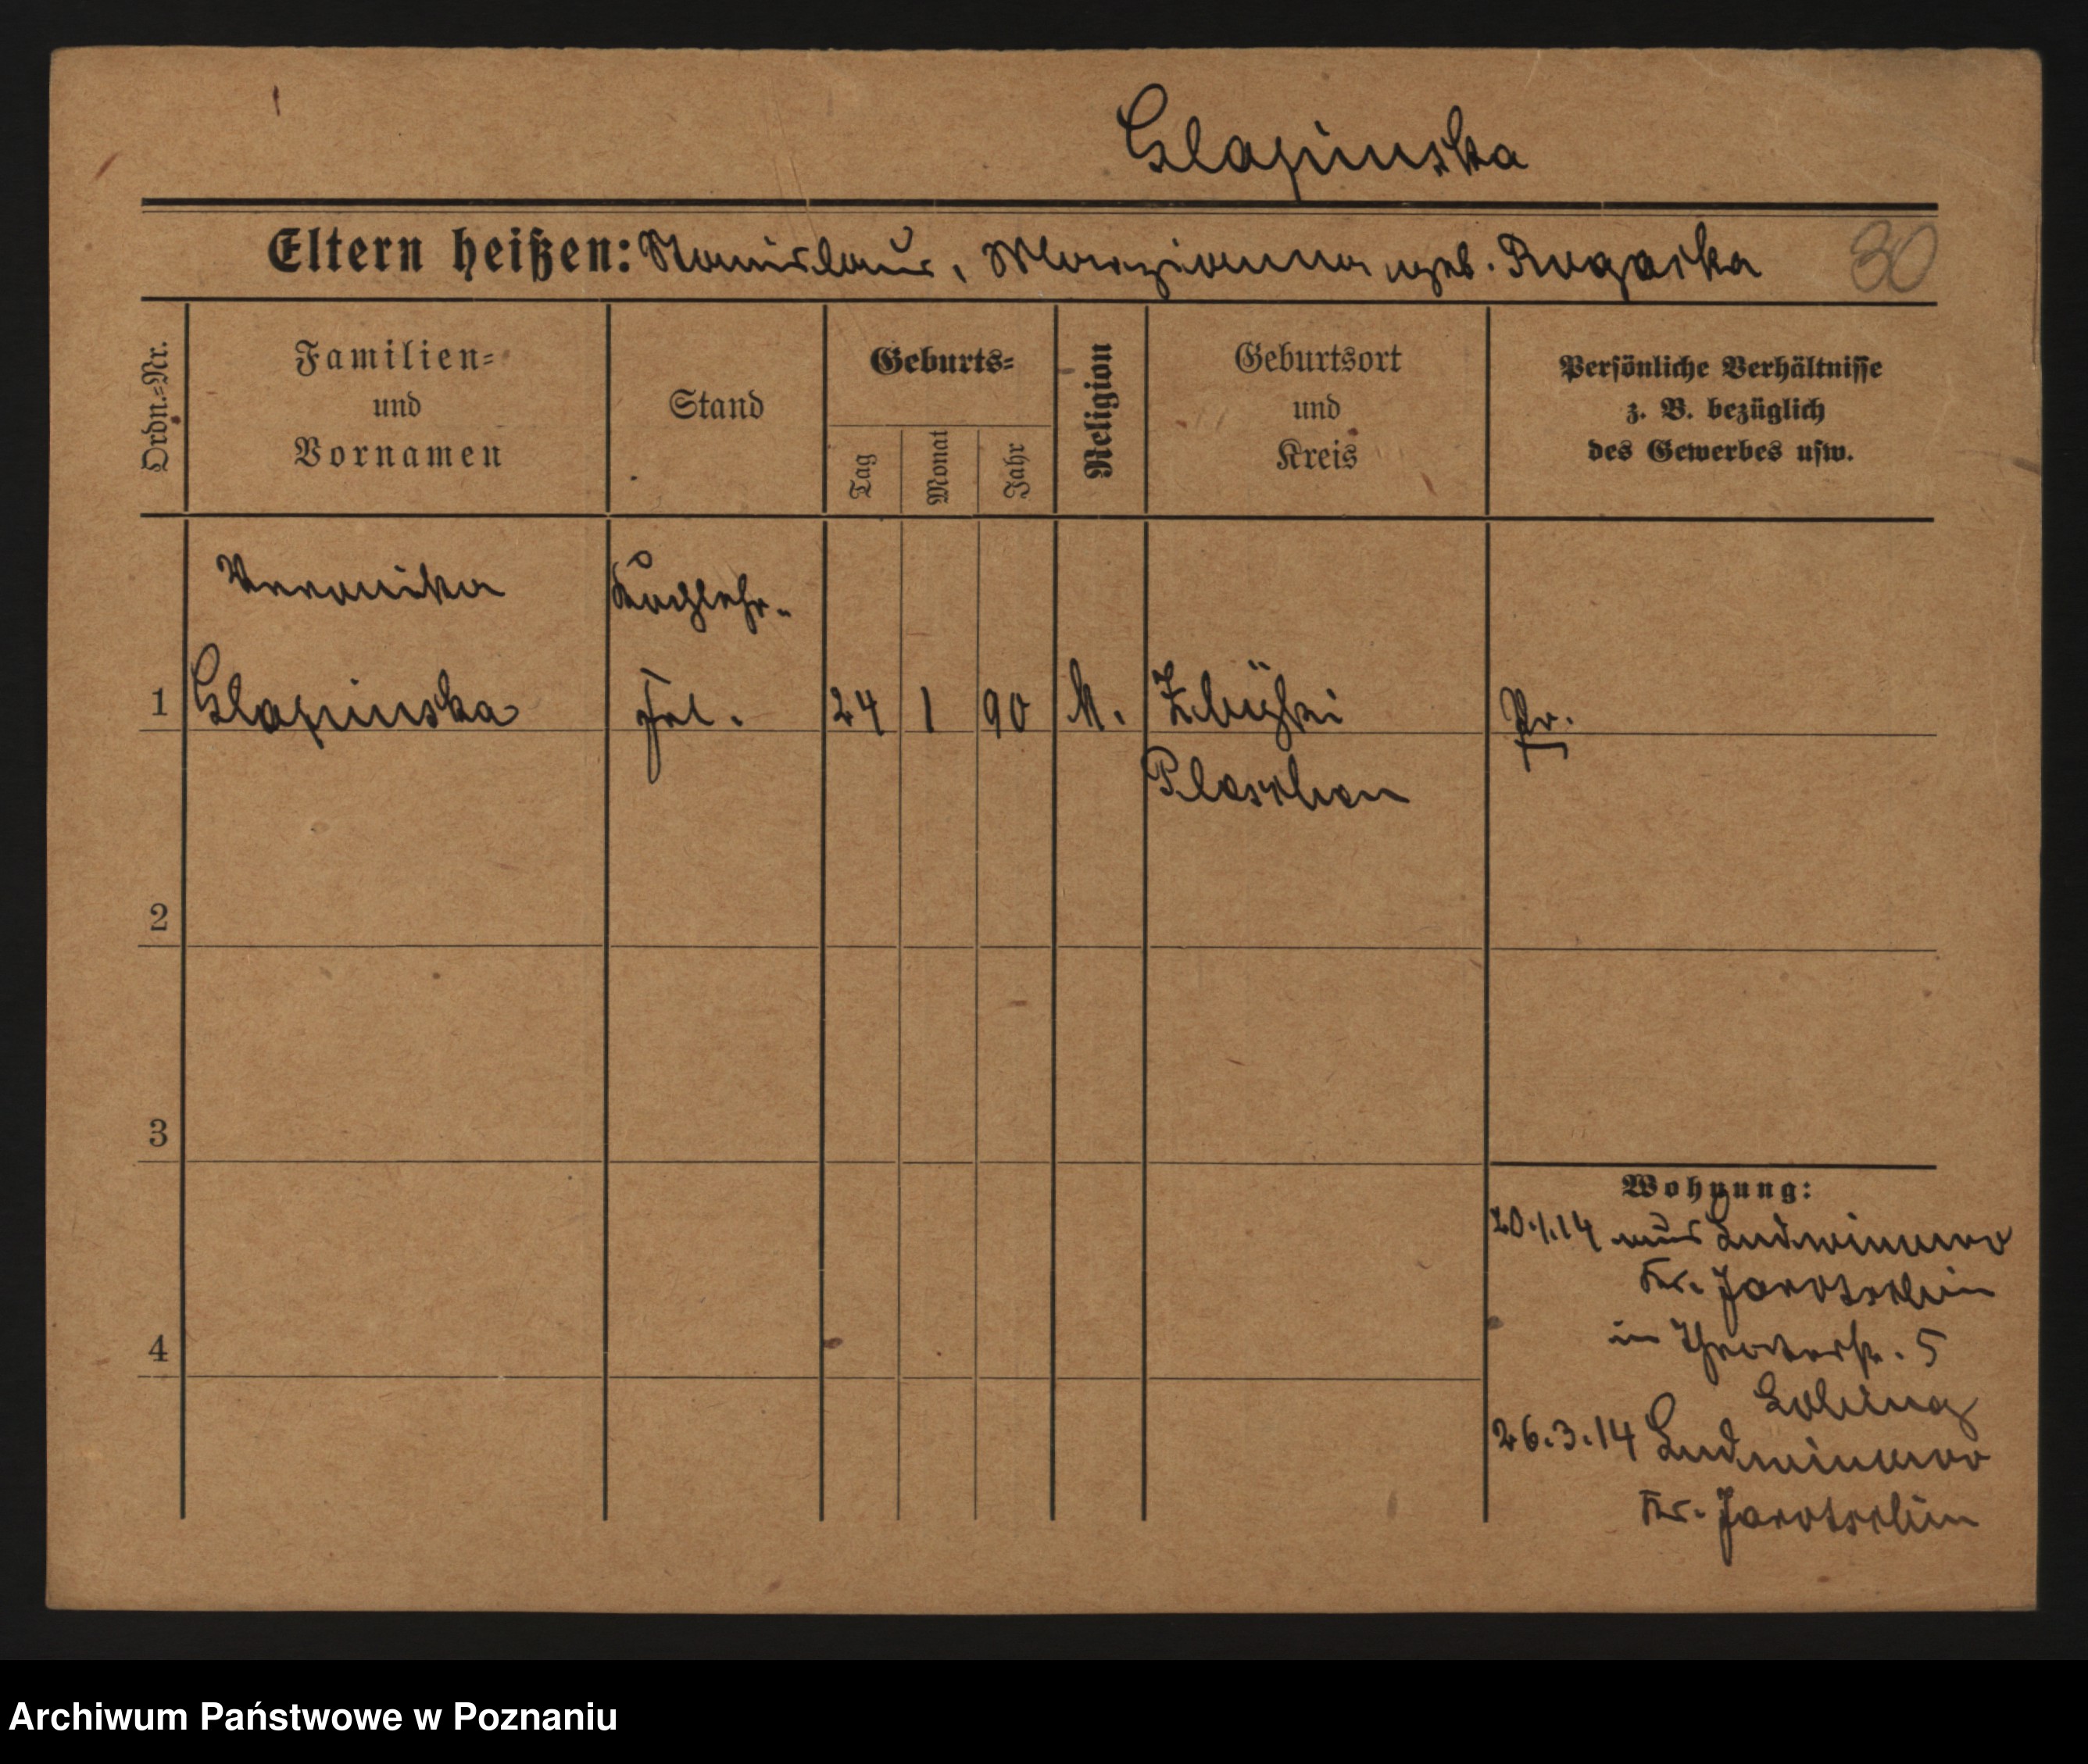 Glapinska
Eltern heißen: Stanislaus, Marzianna geb. Rogacka 30
Ordn.=Nr.
Familien=
und
Vornamen
Stand
Geburts=
Tag
Monat
Jahr
Religion
Geburtsort
und
Kreis
Persönliche Verhältnisse
z. B. bezüglich
des Gewerbes usw.
Veronika Kochlehr-
1 Glapinska Frl. 24 1 90 k. Pr.
Pleschen
2
3
4
Wohnung:
20.1.14 aus Ludwinowo
Kr. Jarotschin
in Theaterstr. 5
26.3.14 Ludwinowo
Kr. Jarotschin
Archiwum Państwowe w Poznaniu